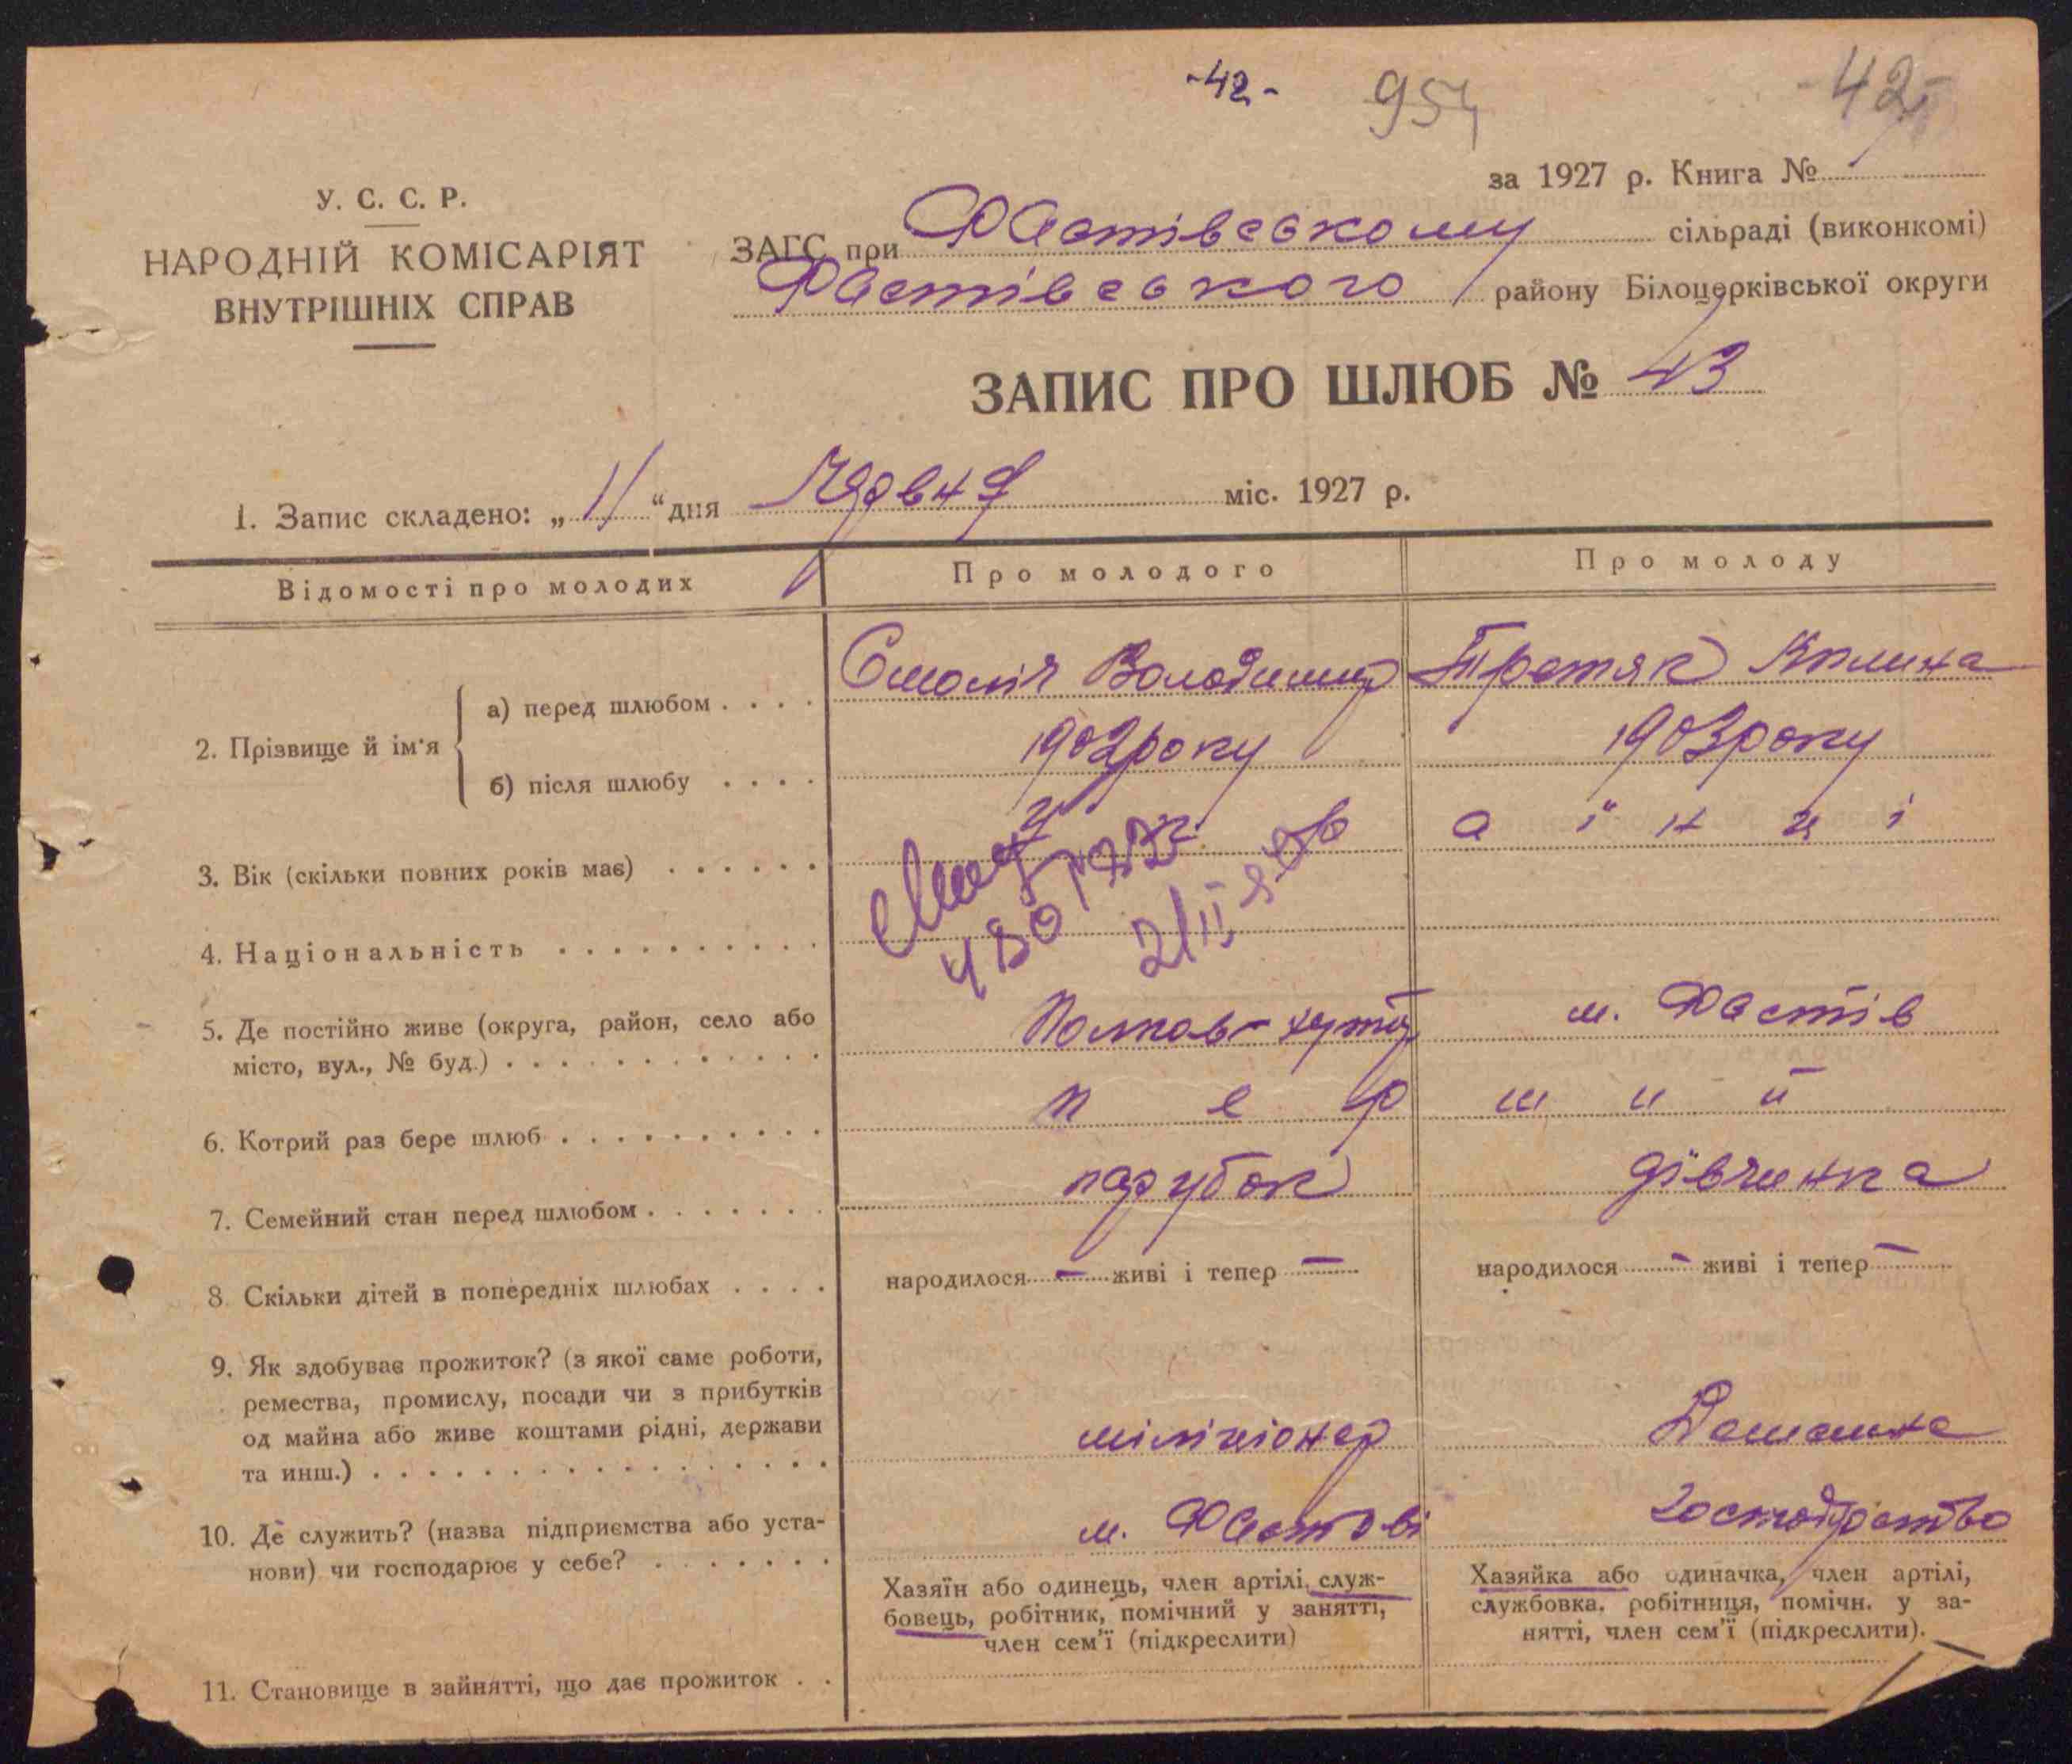 -42- 954 -42-
за 1927 р. Книга №
У. С. С. Р.
НАРОДНІЙ КОМІСАРІЯТ
ВНУТРІШНІХ СПРАВ
ЗАГС при Фастівському сільраді (виконкомі)
Фастівського району Білоцерківської округи
ЗАПИС ПРО ШЛЮБ № 43
1. Запис складено: „ 11 “ дня Червня міс. 1927 р.
Відомості про молодих Про молодого Про молоду
2. Прізвище й ім'я а) перед шлюбом . . . . Смоліч Володимир Третяк Килина
б) після шлюбу . . . . 1902 року 1903 року
3. Вік (скільки повних років має) . . . . . . у а ї н ц і
4. Національність . . . . . . . . . .
480
2/II
5. Де постійно живе (округа, район, село або Хутор м. Фастів
місто, вул., № буд.) . . . . . . . . . . . .
6. Котрий раз бере шлюб . . . . . . . . . . п е р ш и й
7. Семейний стан перед шлюбом . . . . . . . парубок дівчинка
8. Скільки дітей в попередніх шлюбах . . . . народилося — живі і тепер — народилося — живі і тепер —
9. Як здобуває прожиток? (з якої саме роботи,
ремества, промислу, посади чи з прибутків
од майна або живе коштами рідні, держави
та инш.) . . . . . . . . . . . . . . . . . міліціонер Домашнє
10. Де служить? (назва підприємства або уста-
нови) чи господарює у себе? . . . . . . . м. Фастові господарство
Хазяїн або одинець, член артілі, служ-
бовець, робітник, помічний у занятті,
член сем'ї (підкреслити)
Хазяйка або одиначка, член артілі,
службовка, робітниця, помічн. у за-
нятті, член сем'ї (підкреслити).
11. Становище в зайнятті, що дає прожиток . .